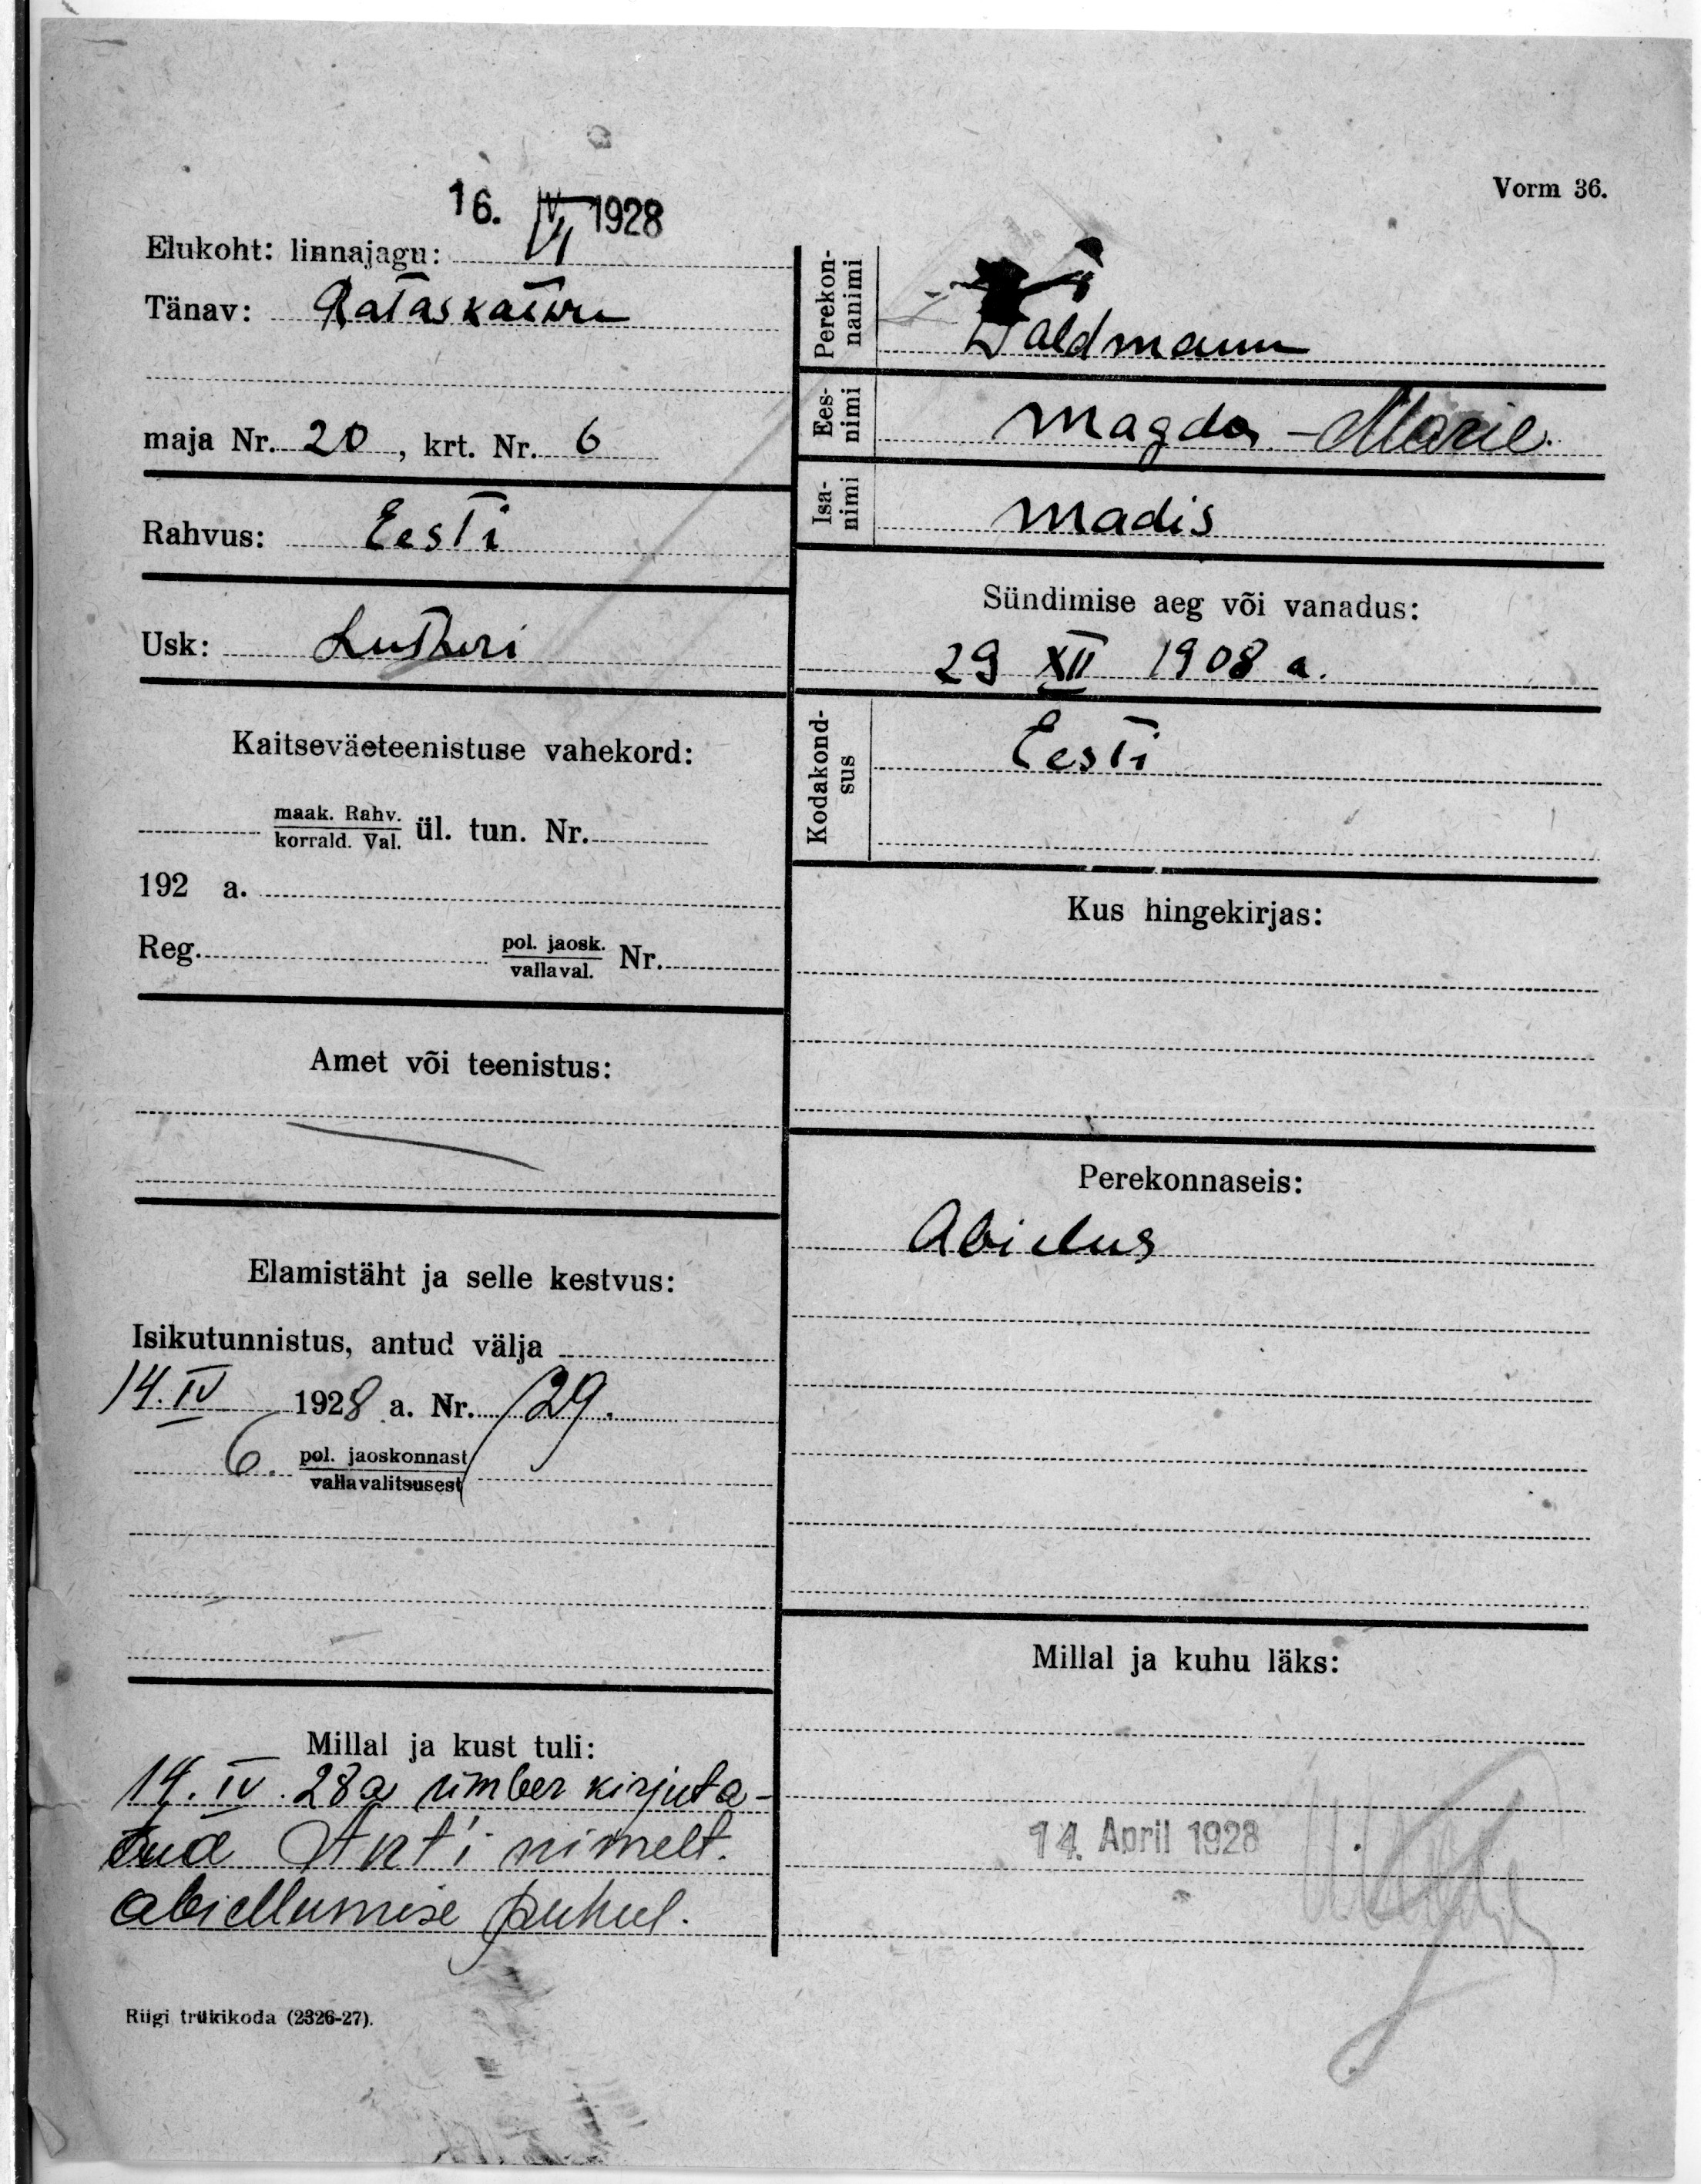 Vorm 36.
16. IV 1928
Elukoht: linnajagu: VI
Tänav: Rataskaewu
maja Nr. 20, krt. Nr. 6
Rahvus: Eesti
Usk: Lutheri
Kaitseväeteenistuse vahekord:
maak. Rahv.
korrald. Val. ül. tun. Nr.
192 a.
Reg. pol. jaosk.
vallaval. Nr.
Amet või teenistus:
Elamistäht ja selle kestvus:
Isikutunnistus, antud välja
14. IV 1928 a. Nr. 129.
6. pol. jaoskonnast
vallavalitsusest
Millal ja kust tuli:
14. IV. 28 a ümber kirjuta-
tud Ant'i nimelt.
abiellumise puhul.
Riigi trükikoda (2326-27).
Perekon-
nanimi
Waldmann
Ees-
nimi
Magda-Marie.
Isa-
nimi
Madis
Sündimise aeg või vanadus:
29 XII 1908 a.
Kodakond-
sus
Eesti
Kus hingekirjas:
Perekonnaseis:
Abielus
Millal ja kuhu läks:
14. April 1928